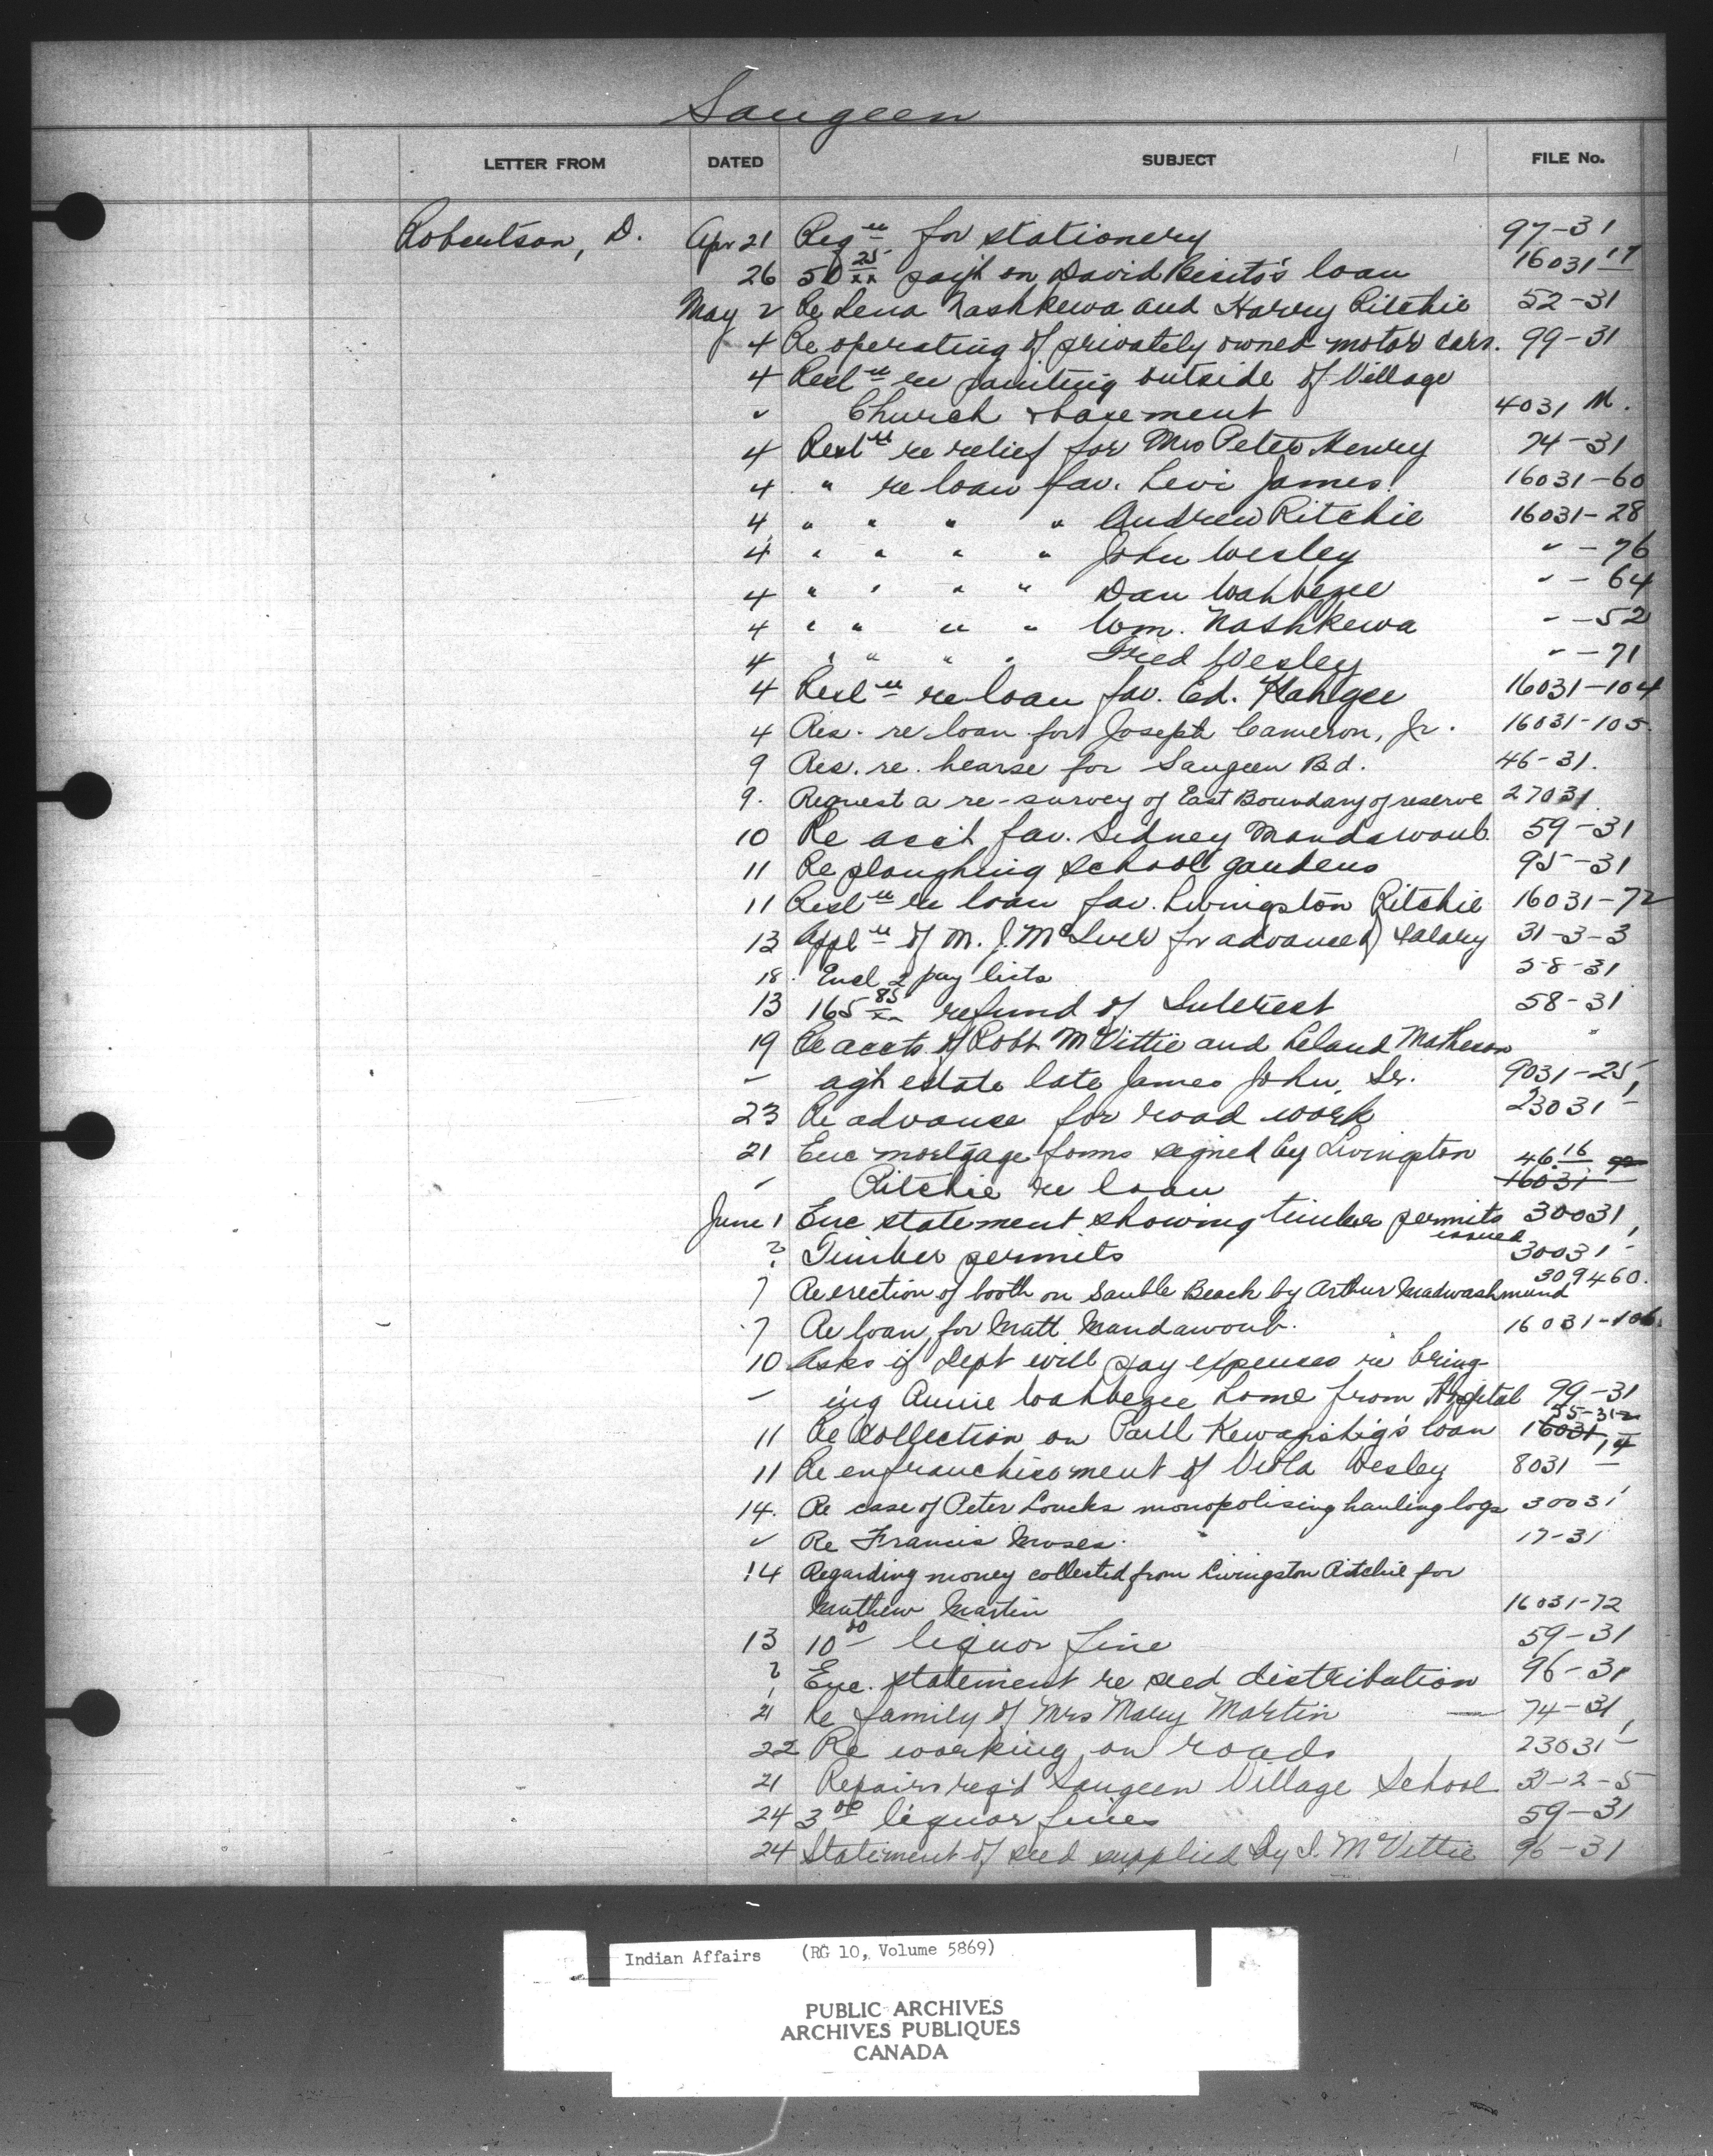 Saugeen
LETTER FROM DATED SUBJECT FILE No.
Robertson, D. Apr 21 Reqn for stationery 97-31
26 50 25/xx pay't on David Besito's loan 16031 17
May 2 Re Lena Nashkewa and Harvey Ritchie 52-31
4 Re operating of privately owned motor cars. 99-31
4 Resln re painting outside of Village
" Church & basement 4031 M.
4 Resln re relief for Mrs Peter Henry 74-31
4 " re loan fav. Levi James 16031-60
4 " " " " Andrew Ritchie 16031-28
4 " " " " John Wesley " -76
4 " " " " Dan Wahbezee " -64
4 " " " " Wm. Nashkewa " -52
4 " " " " Fred Wesley " -71
4 Resln re loan fav. Ed. Kahgee 16031-104
4 Res. re loan for Joseph Cameron, Jr. 16031-105
9 Res. re. hearse for Saugeen Bd. 46-31.
9. Request a re-survey of East Boundary of reserve 27031.
10 Re acct fav. Sidney Mandawoub. 59-31
11 Re ploughing school gardens 95-31
11 Resln re loan fav. Livingston Ritchie 16031-72
13 Appln of M. J. McIver for advance of salary 31-3-3
18. Encl 2 pay lists 58-31
13 165 85/xx refund of Interest 58-31
19 Re accts of Robt McVittie and Leland Matheson "
" ag'st estate late James John, Sr. 9031-25
23 Re advance for road work 23031-1
21 Enc mortgage forms signed by Livingston 46.16
" Ritchie re loan 16031
June 1 Enc statement showing timber permits 30031
issued
? Timber permits 30031-1
7 Re erection of booth on Sauble Beach by Arthur Madwashmund 309460.
7 Re loan for Matt Mandawoub. 16031-106.
10 Asks if Dept will pay expenses re bring-
" ing Annie Wahbezee home from Hospital 99-31
11 Re Collection on Paul Kewaquishig's loan 16031 55-31-2
11 Re enfranchisement of Viola Wesley 8031 14
14. Re case of Peter Loucks monopolising hauling logs 30031
" Re Francis Moses. 17-31
14 Regarding money collected from Livingston Ritchie for
Mauthew Martin 16031-72
13 10 00 liquor fine 59-31
? Enc. statement re seed distribution 96-31
21 Re family of Mrs Mary Martin — 74-31
22 Re working on roads 23031-1
21 Repairs reqd Saugeen Village School 31-2-5
24 3 00 liquor fines 59-31
24 Statement of seed supplied by I. McVittie 96-31
Indian Affairs (RG 10, Volume 5869)
PUBLIC ARCHIVES
ARCHIVES PUBLIQUES
CANADA